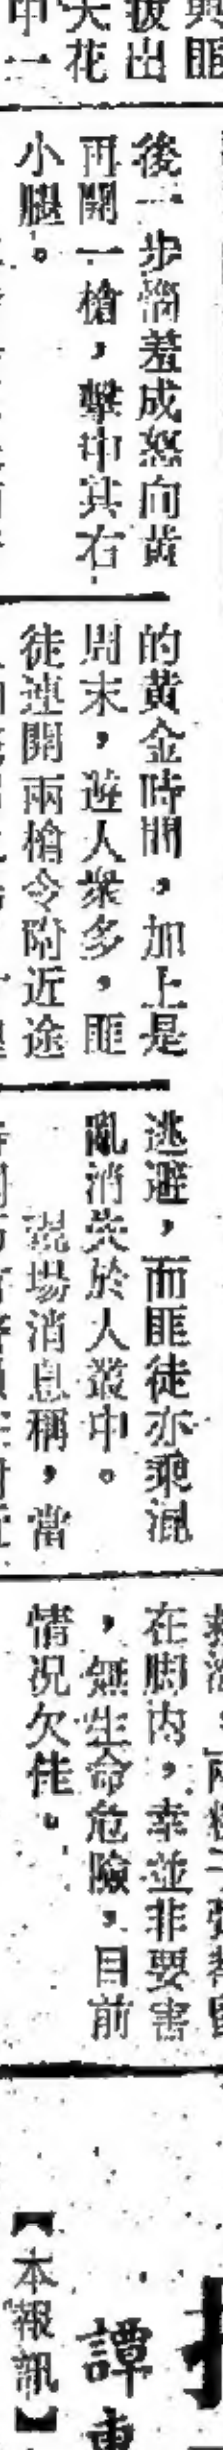 與匪
拔出
天花
中一
後一步惱羞成怒向黃
再開一槍，擊中其右
小腿。
的黃金時間，加上是
周末，遊人衆多，匪
徒連開兩槍令附近途
逃避，而匪徒亦乘混
亂消失於人叢中。
現場消息稱，當
在脚內，幸並非要害
，無生命危險，目前
情况欠佳。
譚
【本報訊】